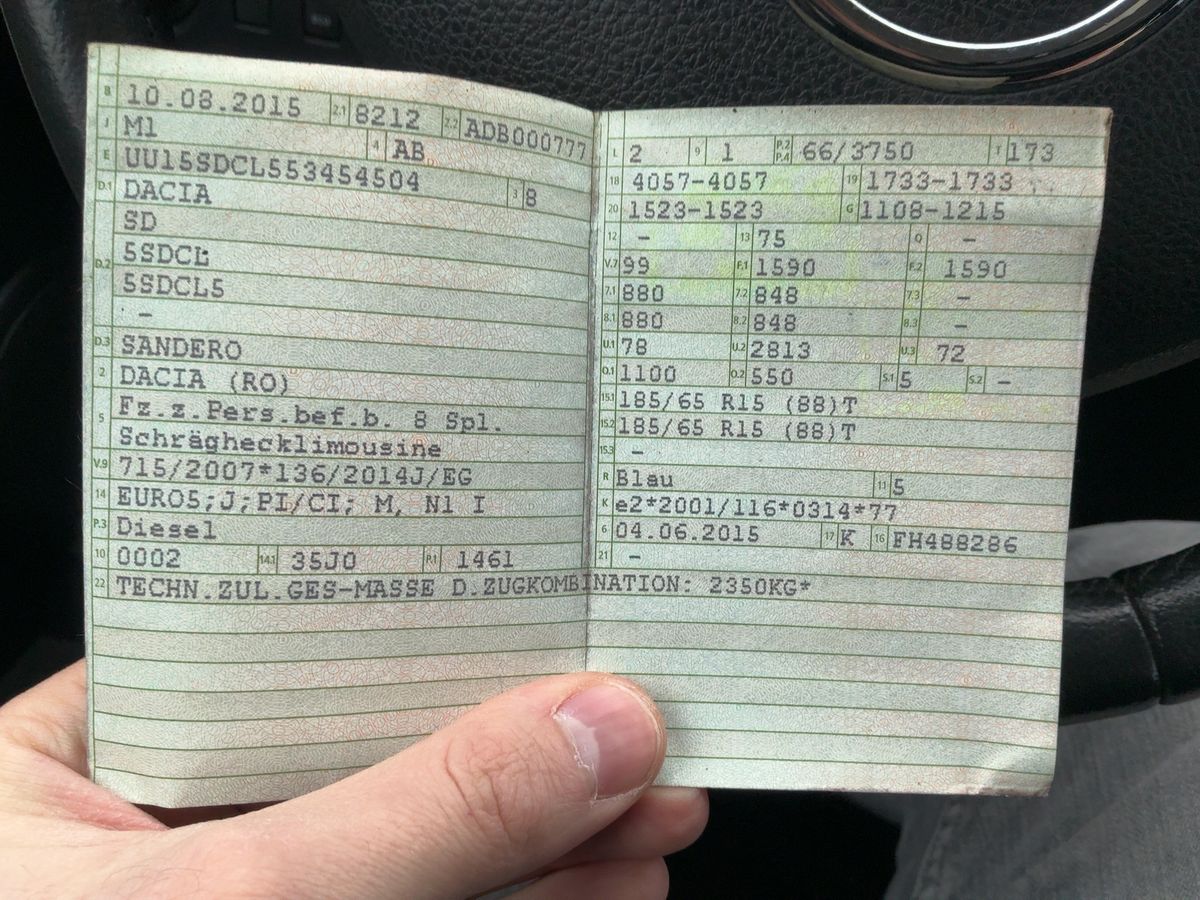 B 10.08.2015 2.1 8212 2.2 ADB000777
J M1 4 AB
E UU15SDCL553454504 3 8
D.1 DACIA
D.2 SD
5SDCL
5SDCL5
-
D.3 SANDERO
2 DACIA (RO)
5 Fz.z.Pers.bef.b. 8 Spl.
Schräghecklimousine
V.9 715/2007*136/2014J/EG
14 EURO5;J;PI/CI; M, N1 I
P.3 Diesel
10 0002 14.1 35J0 P.1 1461
22 TECHN.ZUL.GES-MASSE D.ZUGKOMBINATION: 2350KG*
L 2 9 1 P.2 P.4 66/3750 T 173
18 4057-4057 19 1733-1733
20 1523-1523 G 1108-1215
12 - 13 75 Q -
V.7 99 F.1 1590 F.2 1590
7.1 880 7.2 848 7.3 -
8.1 880 8.2 848 8.3 -
U.1 78 U.2 2813 U.3 72
O.1 1100 O.2 550 S.1 5 S.2 -
15.1 185/65 R15 (88)T
15.2 185/65 R15 (88)T
15.3 -
R Blau 11 5
K e2*2001/116*0314*77
6 04.06.2015 17 K 16 FH488286
21 -